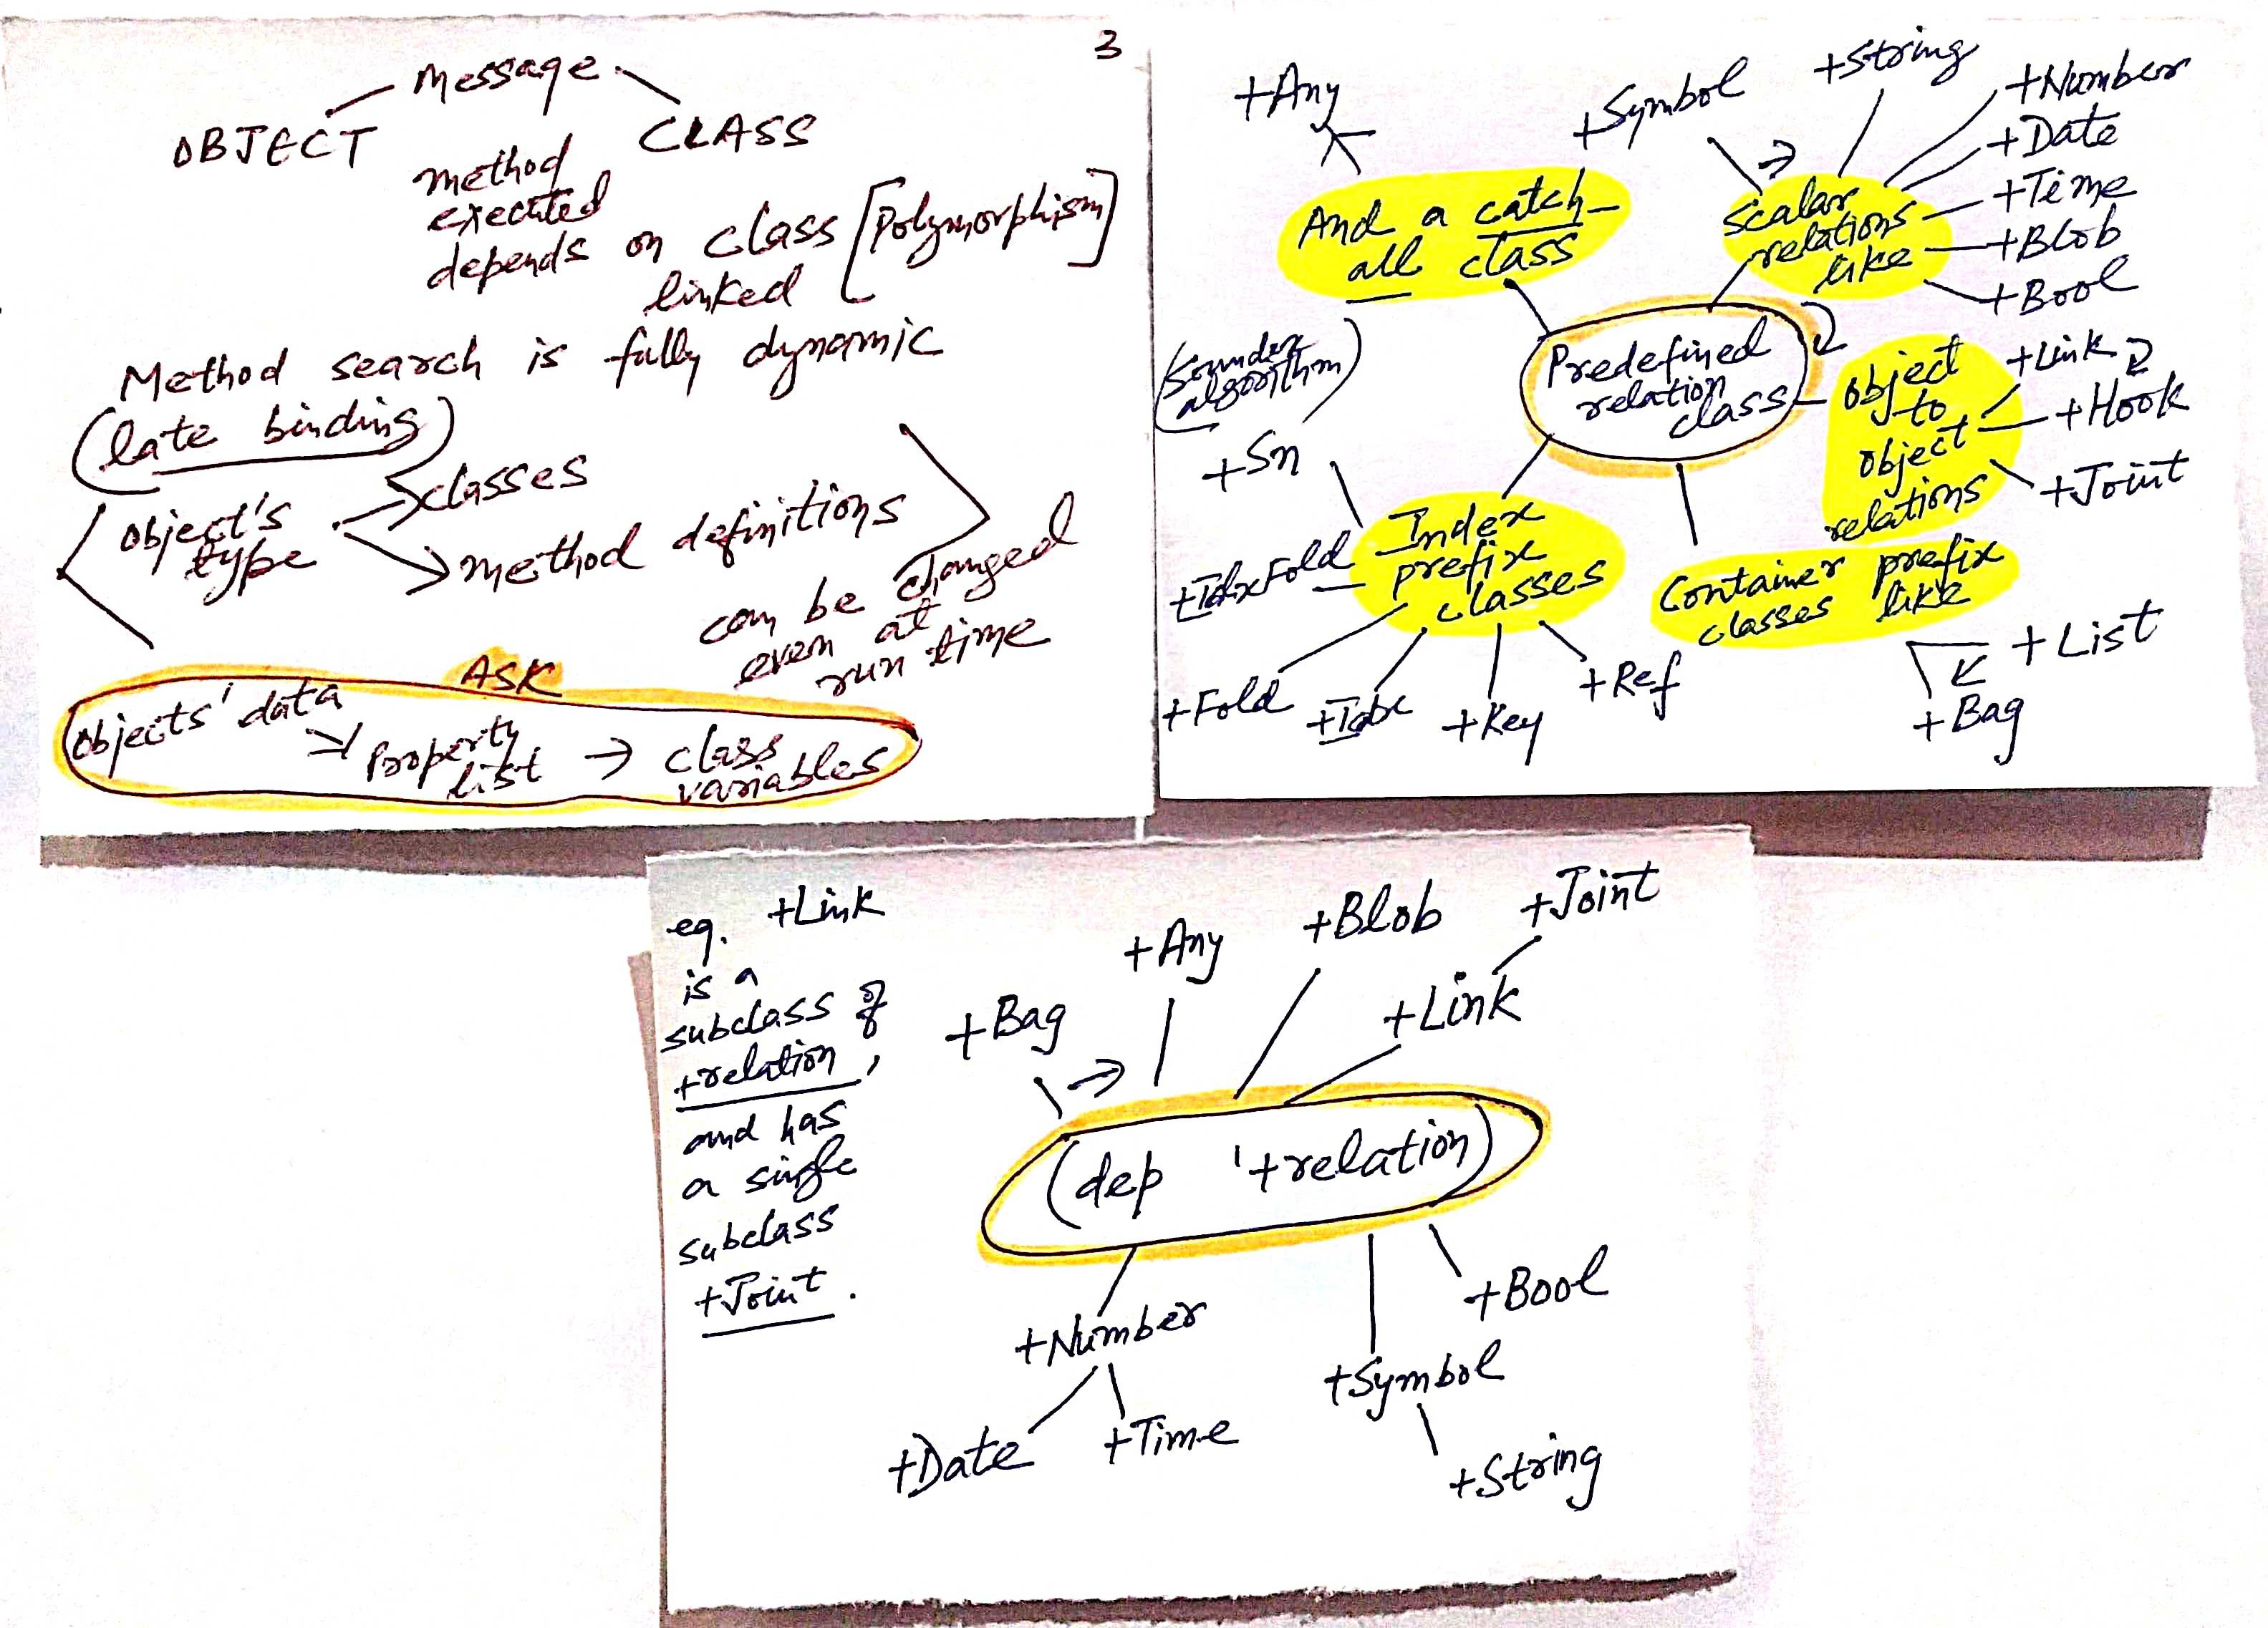 3
Message
OBJECT
CLASS
method
executed
depends on class [Polymorphism]
linked
Method search is fully dynamic
(late binding)
object's
type
classes
method definitions
can be changed
even at
run time
ASK
Objects' data
Property
list → class
variables
+Any
+Symbol
+String
+Number
+Date
+Time
+Blob
+Bool
And a catch-
all class
Scalar
relations
like
Predefined
relation
class
object
to
object
relations
+Link
+Hook
+Joint
(Soundex
algorithm)
+Sn
+IdxFold
+Fold
+Idx
+Key
+Ref
Index
prefix
classes
Container prefix
classes like
+List
+Bag
eg. +Link
is a
subclass of
+relation,
and has
a single
subclass
+Joint.
+Bag
+Any
+Blob
+Joint
+Link
(dep '+relation)
+Number
+Date
+Time
+Symbol
+String
+Bool